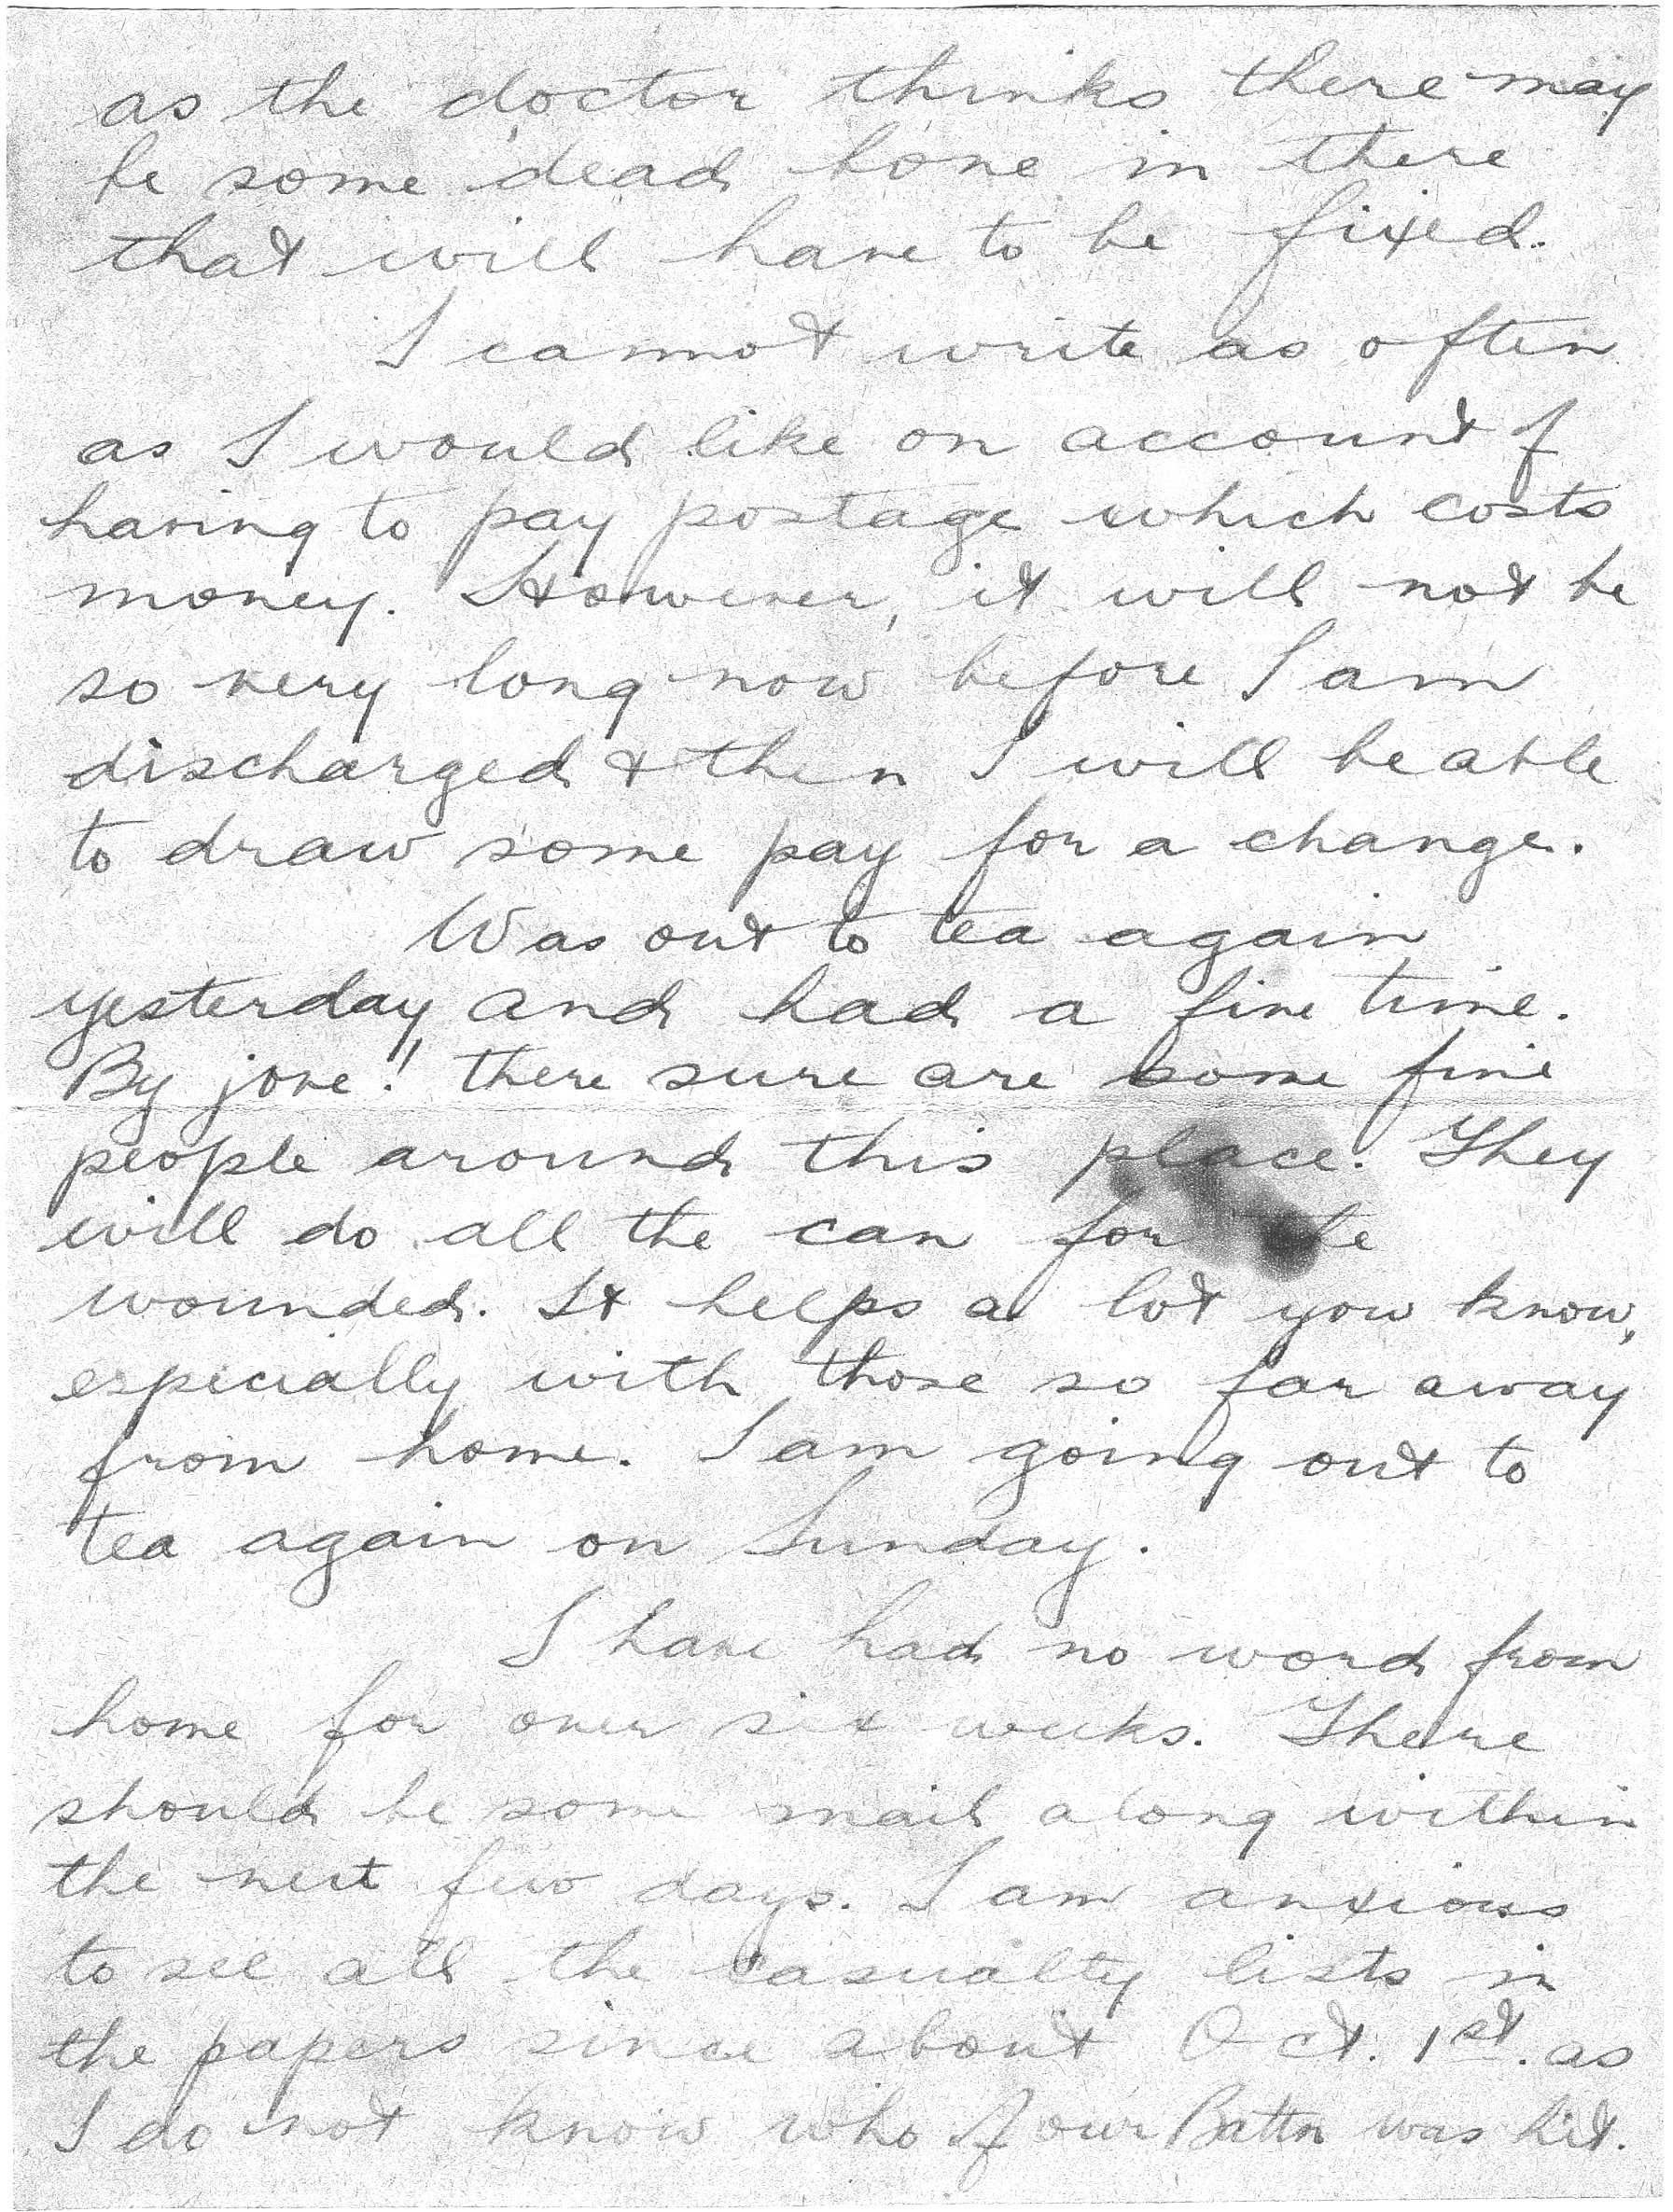 as the doctor thinks there may
be some dead bone in there
that will have to be fixed.
I cannot write as often
as I would like on account of
having to pay postage which costs
money. However, it will not be
so very long now before I am
discharged & then I will be able
to draw some pay for a change.
Was out to tea again
yesterday and had a fine time.
By jove! there sure are some fine
people around this place. They
will do all the can for the
wounded. It helps a lot you know,
especially with those so far away
from home. I am going out to
tea again on Sunday.
I have had no word from
home for over six weeks. There
should be some mail along within
the next few days. I am anxious
to see all the casualty lists in
the papers since about Oct. 1st. as
I do not know who of our Battn was hit.